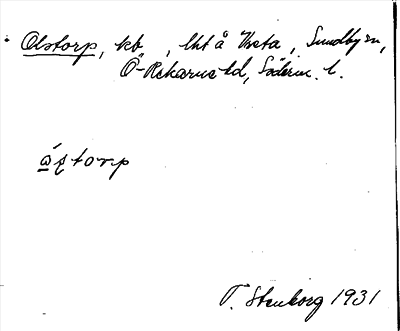 Olstorp, kb, lht å Vreta, Sundby sn,
Ö-Rekarne hd, Söderm. l.
ástorp
T. Stenborg 1931